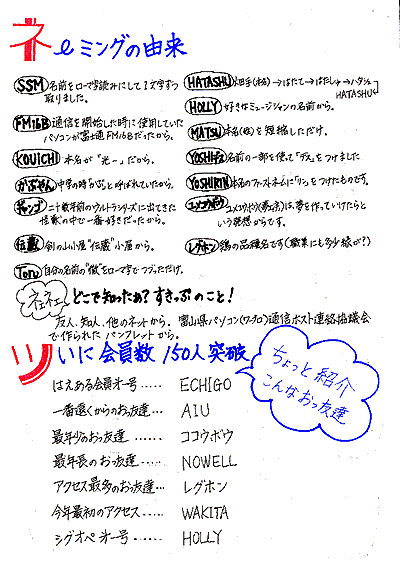 ネeミングの由来
SSM 名前をローマ字読みにして1文字ずつ
取りました。
FM16B 通信を開始した時に使用していた
パソコンが富士通FM16Bだったから。
KOUICHI 本名が「光一」だから。
かぶせん 中学の時「かぶ」と呼ばれていたから。
ギャンゴ 二十数年前のウルトランシーズに出てきた
怪獣の中で一番好きだったから。
伝蔵 剣の山小屋"伝蔵"小屋から。
Toru 自分の名前の"徹"をローマ字でつづっただけ。
HATASHU →はたて→はたしゅ→ハタシュ
HATASHU
HOLLY 好きなミュージシャンの名前から。
MATSU 本名(松)を短縮しただけ。
YOSHIたz 名前の一部を使って「たz」をつけました
YOSHIRIN 本名のファストネームに「リン」をつけたものです。
ユメコウボウ ユメコウボウ(夢工房)は、夢を作っていけたらと
いう発想からです。
レグホン 鶏の品種名です(職業にも多少縁が?)
ネェネェ どこで知ったぁ?すきっぷのこと!
友人、知人、他のネットから。富山県パソコン(ワープロ)通信ホスト連絡協議会
で作られたパンフレットから。
ツいに会員数150人突破
ちょっと紹介
こんなおっ友達
はえある会員オ一号…… ECHIGO
一番遠くからのおっ友達… AIU
最年少のおっ友達…… ココウボウ
最年長のおっ友達…… NOWELL
アクセス最多のおっ友達… レグホン
今年最初のアクセス…… WAKITA
シグオペオ一号…… HOLLY